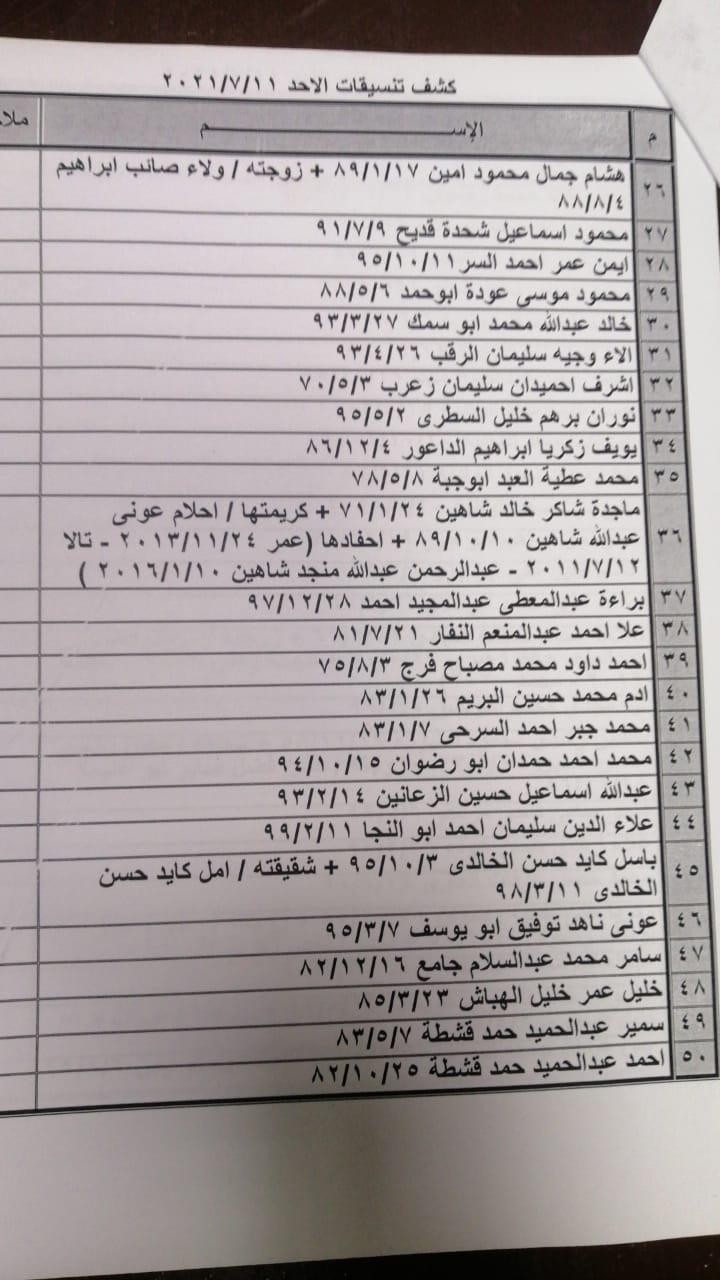 كشف تنسيقات الاحد ٢٠٢١/٧/١١
م الإســـــــــــــم ملا
٢٦ هشام جمال محمود امين ٨٩/١/١٧ + زوجته / ولاء صائب ابراهيم
٨٨/٨/٤
٢٧ محمود اسماعيل شحدة قديح ٩١/٧/٩
٢٨ ايمن عمر احمد السر ٩٥/١٠/١١
٢٩ محمود موسى عودة ابوحمد ٨٨/٥/٦
٣٠ خالد عبدالله محمد ابو سمك ٩٣/٣/٢٧
٣١ الاء وجيه سليمان الرقب ٩٣/٤/٢٦
٣٢ اشرف احميدان سليمان زعرب ٧٠/٥/٣
٣٣ نوران برهم خليل السطرى ٩٥/٥/٢
٣٤ يويف زكريا ابراهيم الداعور ٨٦/١٢/٤
٣٥ محمد عطية العبد ابوجبة ٧٨/٥/٨
٣٦ ماجدة شاكر خالد شاهين ٧١/١/٢٤ + كريمتها / احلام عونى
عبدالله شاهين ٨٩/١٠/١٠ + احفادها (عمر ٢٠١٣/١١/٢٤ - تالا
٢٠١١/٧/١٢ - عبدالرحمن عبدالله منجد شاهين ٢٠١٦/١/١٠ )
٣٧ براءة عبدالمعطى عبدالمجيد احمد ٩٧/١٢/٢٨
٣٨ علا احمد عبدالمنعم النفار ٨١/٧/٢١
٣٩ احمد داود محمد مصباح فرج ٧٥/٨/٣
٤٠ ادم محمد حسين البريم ٨٣/١/٢٦
٤١ محمد جبر احمد السرحى ٨٣/١/٧
٤٢ محمد احمد حمدان ابو رضوان ٩٤/١٠/١٥
٤٣ عبدالله اسماعيل حسين الزعانين ٩٣/٢/١٤
٤٤ علاء الدين سليمان احمد ابو النجا ٩٩/٢/١١
٤٥ باسل كايد حسن الخالدى ٩٥/١٠/٣ + شقيقته / امل كايد حسن
الخالدى ٩٨/٣/١١
٤٦ عونى ناهد توفيق ابو يوسف ٩٥/٣/٧
٤٧ سامر محمد عبدالسلام جامع ٨٢/١٢/١٦
٤٨ خليل عمر خليل الهباش ٨٥/٣/٢٣
٤٩ سمير عبدالحميد حمد قشطة ٨٣/٥/٧
٥٠ احمد عبدالحميد حمد قشطة ٨٢/١٠/٢٥